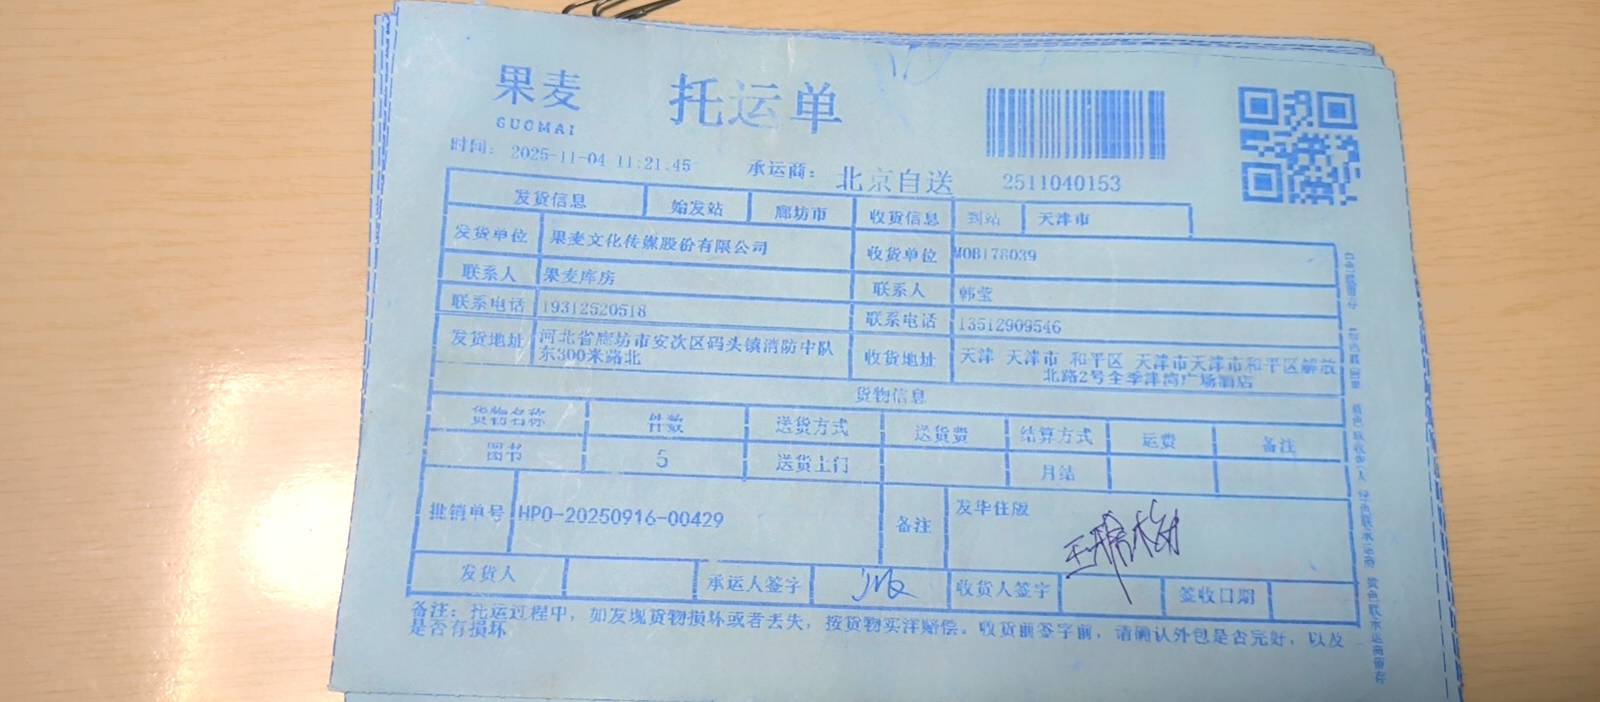 果麦
GUOMAI
托运单
时间: 2025-11-04 11:21:45
承运商: 北京自送
2511040153
发货信息 始发站 廊坊市 收货信息 到站 天津市
发货单位 果麦文化传媒股份有限公司 收货单位 MOB178039
联系人 果麦库房 联系人 韩莹
联系电话 19312520518 联系电话 13512909546
发货地址 河北省廊坊市安次区码头镇消防中队
东300米路北
收货地址 天津 天津市 和平区 天津市天津市和平区解放
北路2号全季津湾广场酒店
货物信息
货物名称 件数 送货方式 送货费 结算方式 运费 备注
图书 5 送货上门 月结
批销单号 HPO-20250916-00429 备注 发华住版
发货人 承运人签字 收货人签字 签收日期
备注: 托运过程中, 如发现货物损坏或者丢失, 按货物实洋赔偿。收货前签字前, 请确认外包是否完好, 以及
是否有损坏